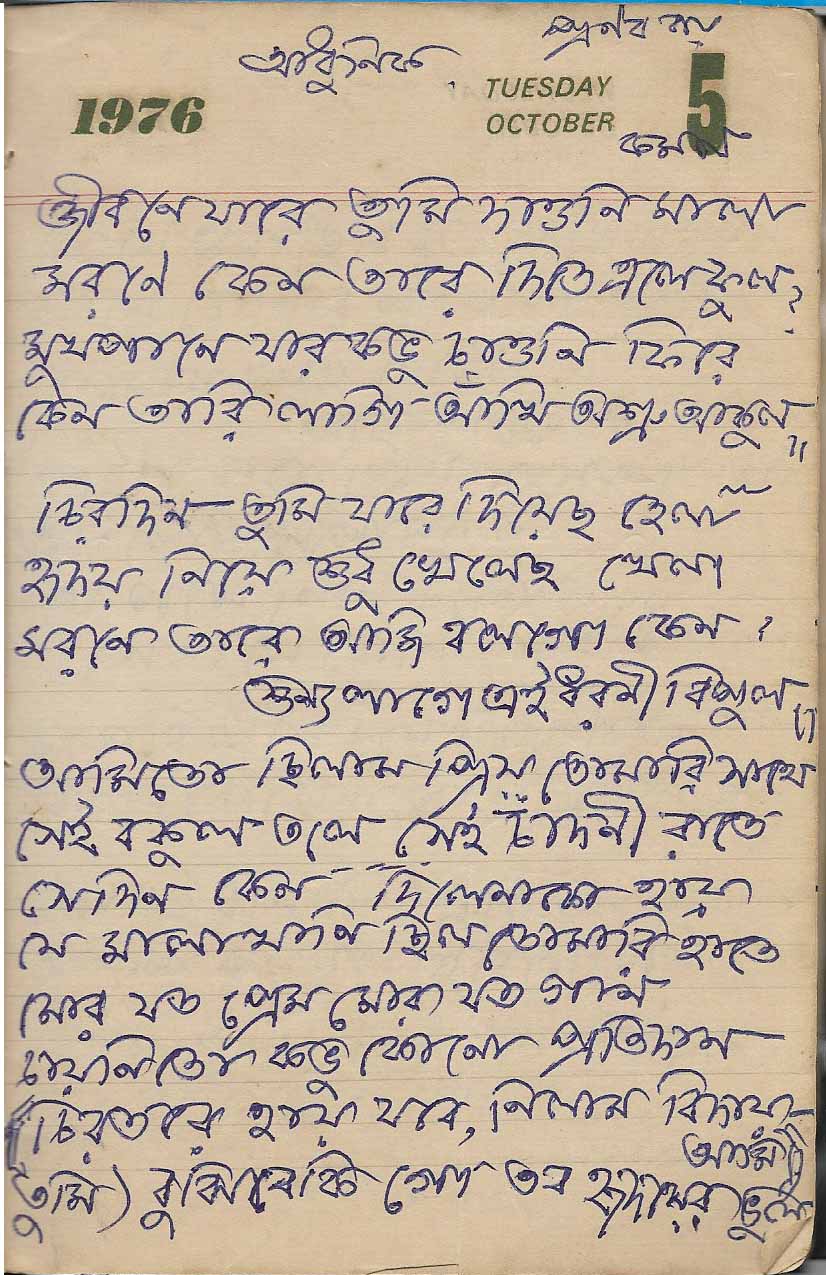 প্রণব রায়
আধুনিক
1976 TUESDAY OCTOBER 5
কমল
জীবনে যারে তুমি দাওনি মালা
মরণে কেন তারে দিতে এলে ফুল?
মুখপানে যার কভু চাওনি ফিরে
কেন তারি লাগি আঁখি অশ্রু আকুল॥
চিরদিন তুমি যারে দিয়েছ হেলা
হৃদয় নিয়ে শুধু খেলেছ খেলা
মরণে তারে আজি বলগো কেন?
শুন্য লাগে এই ধরনী বিপুল॥
আমিতো ছিলাম প্রিয় তোমারি সাথে
সেই বকুল তলে সেই চাঁদনী রাতে
সেদিন কেন দিলেনাকো হায়
যে মালাখানি ছিল তোমারি হাতে
মোর যত প্রেম মোর যত গান
চায়নি তো কভু কোনো প্রতিদান
চিরতরে হায় যবে, নিলাম বিদায়
আমি
তুমি) বুঝিবে কি গো তব হৃদয়ের ভুল